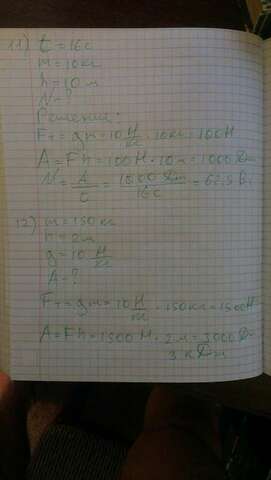 11) t = 16 с
m = 10 кг
h = 10 м
N - ?
Решение:
Fт = gm = 10 Н/кг · 10 кг = 100 Н
A = Fh = 100 Н · 10 м = 1000 Дж
N = A/t = 1000 Дж/16 с = 62,5 В
12) m = 150 кг
h = 2 м
g = 10 Н/кг
A - ?
Fт = gm = 10 Н/кг · 150 кг = 1500 Н
A = Fh = 1500 Н · 2 м = 3000 Дж
3 кДж